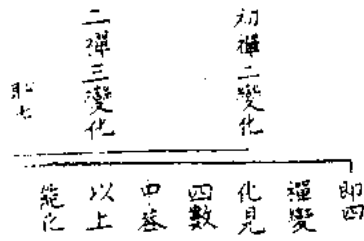 初禪二變化
二禪三變化
即四
禪變
化見
四數
中
以上
能化